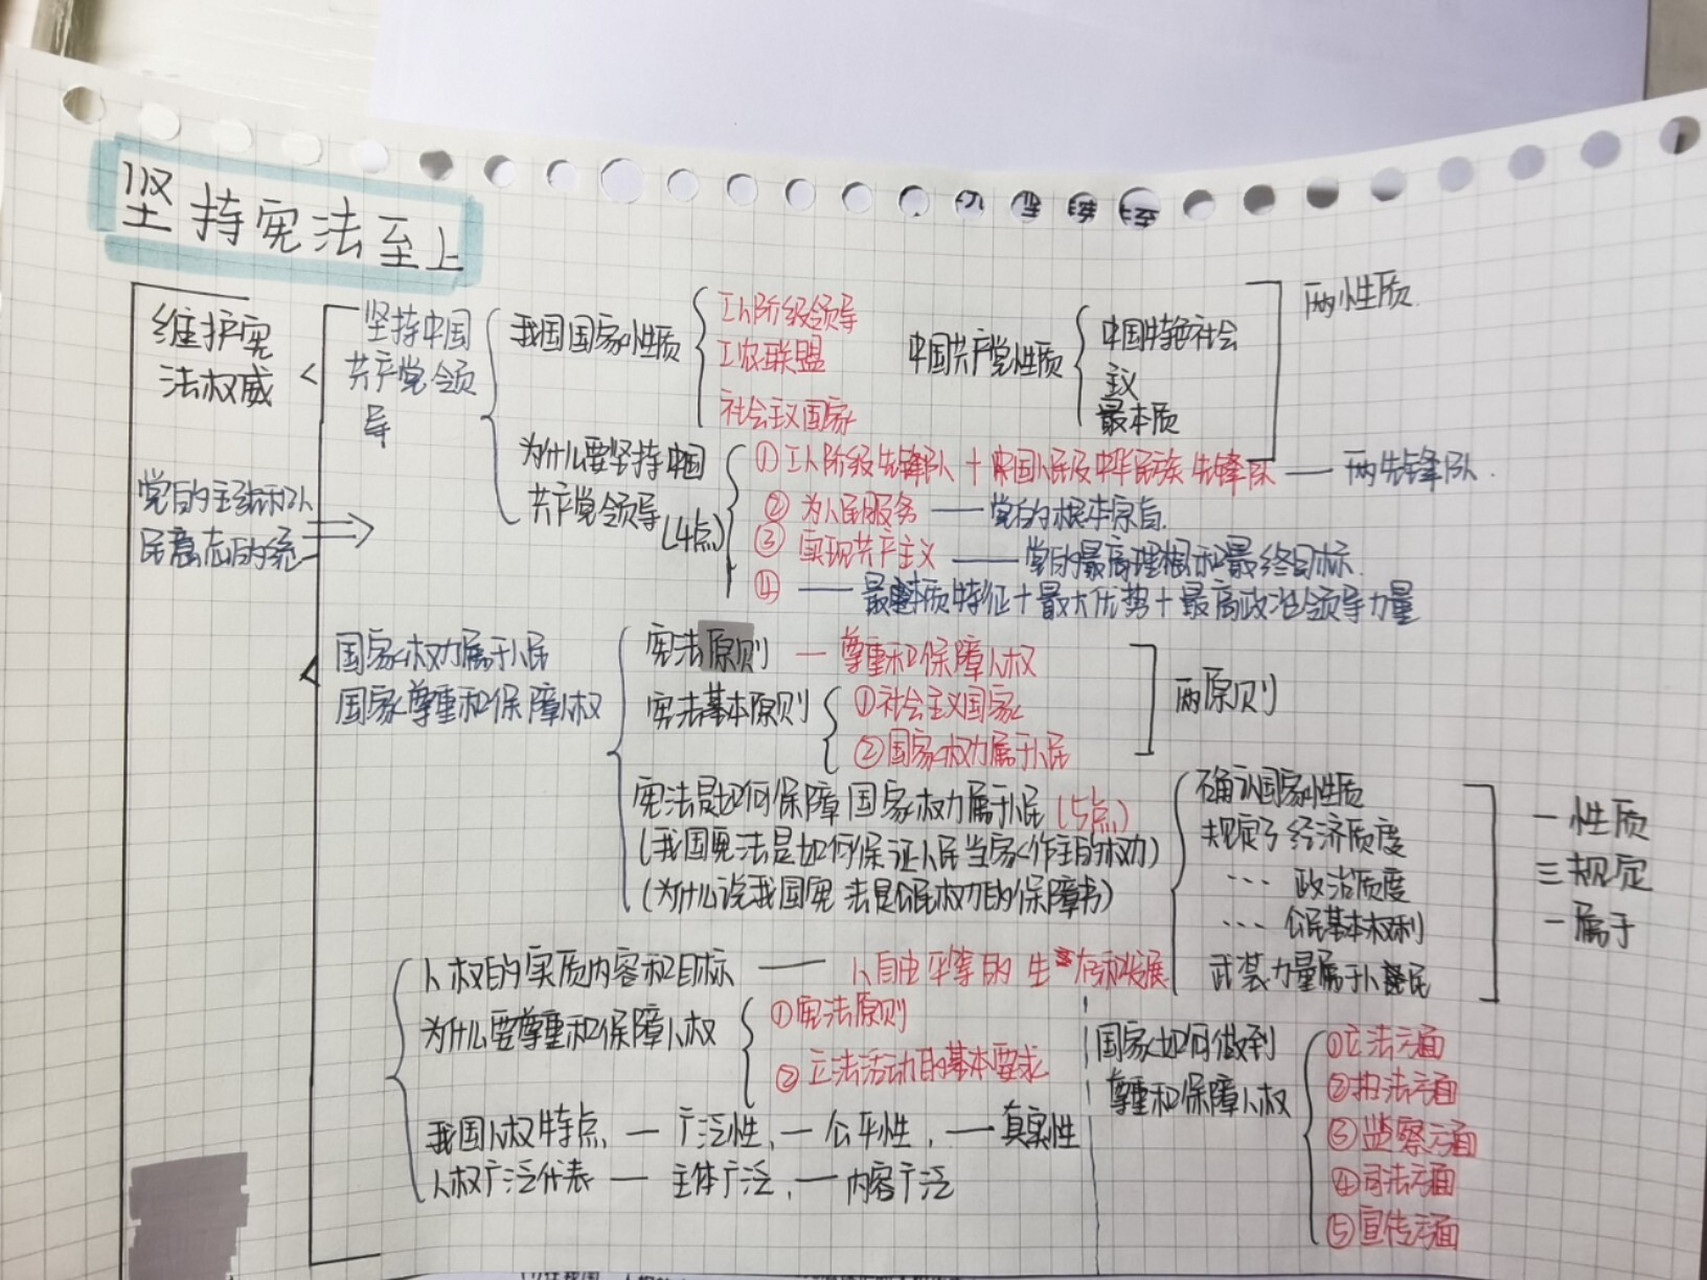 坚持宪法至上
维护宪
法权威
党的主张和人
民意志的统一
坚持中国
共产党领
导
我国国家性质
工人阶级领导
工农联盟
社会主义国家
中国共产党性质
中国特色社会
主义
最本质
两性质
为什么要坚持中国
共产党领导(4点)
①工人阶级先锋队＋中国人民及中华民族先锋队——两先锋队.
②为人民服务——党的根本宗旨.
③实现共产主义——党的最高理想和最终目标.
④——最本质特征＋最大优势＋最高政治领导力量
国家权力属于人民
国家尊重和保障人权
宪法原则—尊重和保障人权
宪法基本原则
①社会主义国家
②国家权力属于人民
两原则
宪法是如何保障国家权力属于人民(5点)
(我国宪法是如何保证人民当家作主的权力)
(为什么说我国宪法是公民权力的保障书)
确认国家性质
规定了经济质度
… 政治质度
… 公民基本权利
武装力量属于人民
一性质
三规定
一属于
人权的实质内容和目标——人自由平等的生存和发展
为什么要尊重和保障人权
①宪法原则
②立法活动的基本要求
我国人权特点—广泛性,—公平性,—真实性
人权广泛代表—主体广泛,—内容广泛
国家如何做到
尊重和保障人权
①立法方面
②执法方面
③监察方面
④司法方面
⑤宣传方面